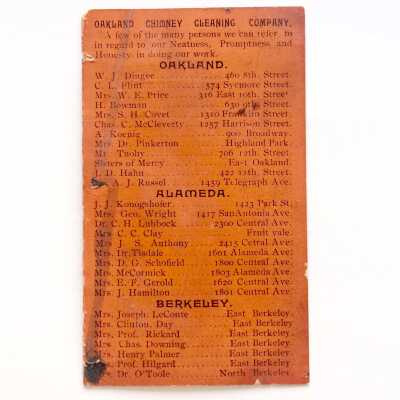 OAKLAND CHIMNEY CLEANING COMPANY,
A few of the many persons we can refer to
in regard to our Neatness, Promptness and
Honesty in doing our work.
OAKLAND.
W. J. Dingee 460 8th. Street.
C. L. Flint 574 Sycmore Street.
Mrs. W. E. Price 316 East 10th. Street
H. Bowman 630 9th. Street.
Mrs. S. H. Covet 1310 Franklin Street.
Chas. C. McCleverty 1257 Harrison Street.
A. Koenig 900 Broadway.
Mrs. Dr. Pinkerton Highland Park.
Mr. Tuohy 706 12th. Street.
Sisters of Mercy East Oakland.
J. D. Hahn 422 11th. Street.
A. J. Russel 1459 Telegraph Ave.
ALAMEDA.
J. J. Konogshofer 1423 Park St.
Mrs. Geo. Wright 1417 San Antonia Ave.
Dr. C. H. Lubbock 2300 Central Ave.
Mrs C. C. Clay Fruit vale.
Mrs J. S. Anthony 2415 Cetral Ave:
Mrs. Dr. Tisdale 1601 Alameda Ave:
Mrs. D. G. Schofield 1800 Central Ave:
Mrs. McCormick 1803 Alameda Ave:
Mrs. E. F. Gerold 1620 Central Ave:
Mrs. J. Hamilton 1801 Central Ave:
BERKELEY.
Mrs. Joseph LeConte East Berkeley.
Mrs. Clinton. Day East Berkeley.
Mrs. Prof. Rickard East Berkeley.
Mrs. Chas. Downing East Berkeley.
Mrs. Henry Palmer East Berkeley.
Prof. Hilgard East Berkeley.
Dr. O'Toole North Berkeley.